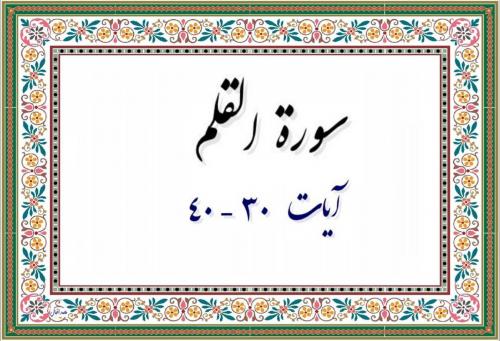 سورة القلم
آیات ۳۰ - ۴۰